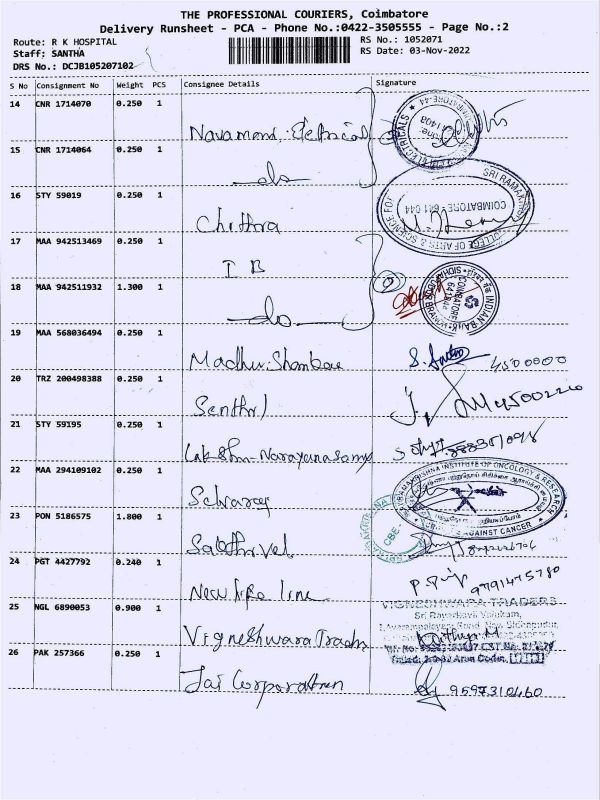 THE PROFESSIONAL COURIERS, Coimbatore
Delivery Runsheet - PCA - Phone No.:0422-3505555 - Page No.:2
Route: R K HOSPITAL
RS No.: 1052071
Staff: SANTHA
RS Date: 03-Nov-2022
DRS No.: DCJB105207102
S No Consignment No Weight PCS Consignee Details Signature
14 CNR 1714070 0.250 1
15 CNR 1714064 0.250 1
do
16 STY 59019 0.250 1
COIMBATORE - 641 044
COLLEGE OF ARTS & SCIENCE FOR
SRI RAMAKRISHNA
Chithra
17 MAA 942513469 0.250 1
I B
18 MAA 942511932 1.300 1
INDIAN BANK
COIMBATORE
do
19 MAA 568036494 0.250 1
Madhu Shankar
4500000
20 TRZ 200498388 0.250 1
Senthil
21 STY 59195 0.250 1
Lakshmi Narayanasamy
22 MAA 294109102 0.250 1
SRI RAMAKRISHNA INSTITUTE OF ONCOLOGY & RESEARCH
AGAINST CANCER
Selvaraj
23 PON 5186575 1.800 1
CBE-
Sakthivel
24 PGT 4427792 0.240 1
New life line
9791475780
25 NGL 6890053 0.900 1
VIGNESHWARA TRADERS
Vigneshwara Traders
26 PAK 257366 0.250 1
Jai Corporation
9597310460